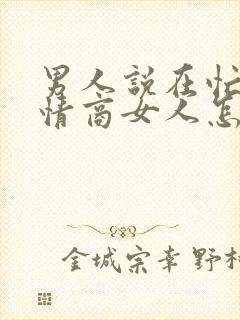 男人説在忙
情商女人怎
金城宗幸野村